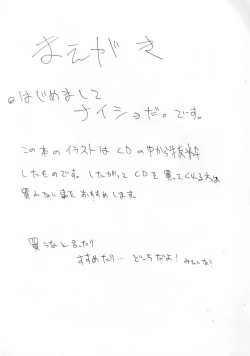 まえがき
◎はじめまして
ナイショだ。です。
この本のイラストはCDの中から抜粋
したものです。したがってCDを買ってくれる方は
買わない事をおすすめします。
買うなと言ったり
すすめたり… どっちだよ!みたいな?